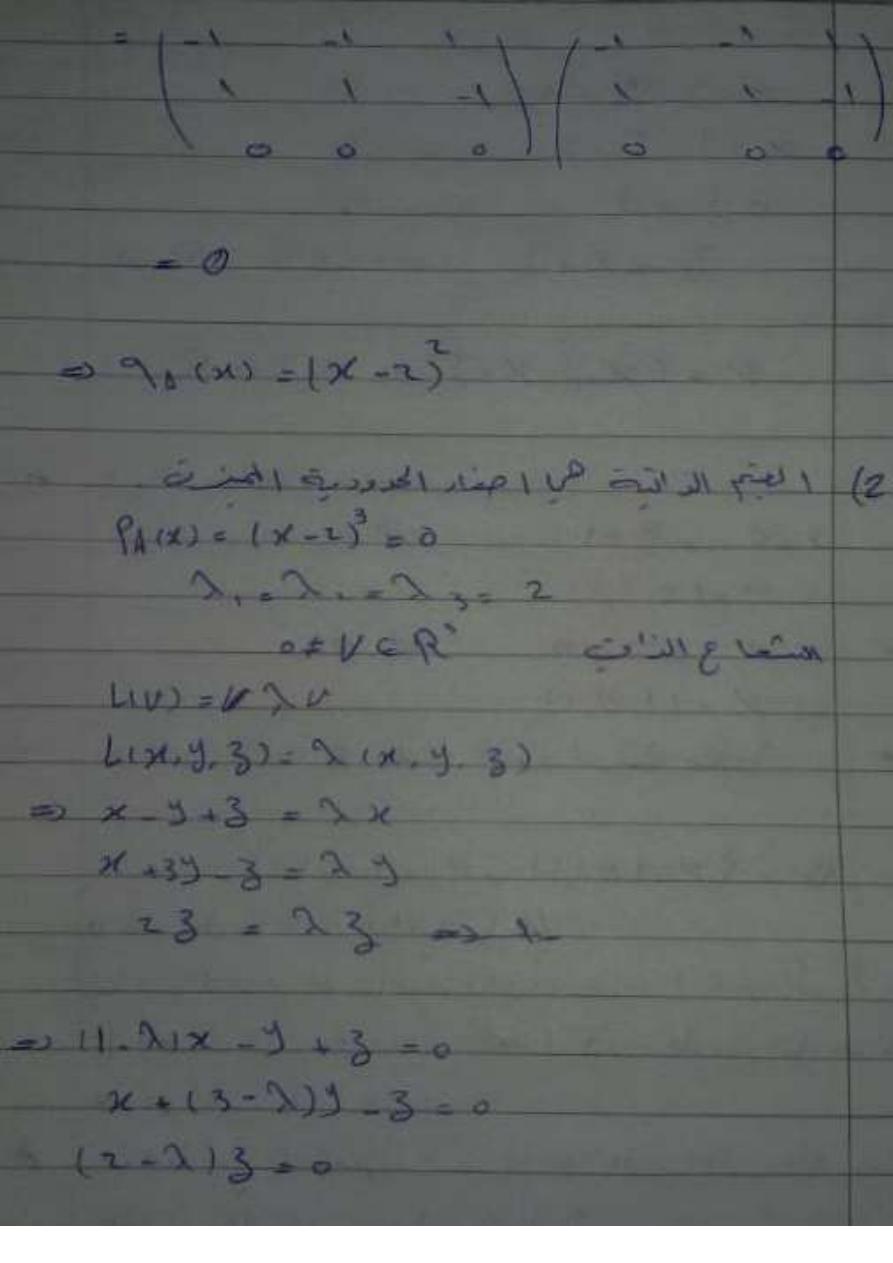 = ( -1 -1 1 ) ( -1 -1 1 )
1 1 -1 1 1 -1
0 0 0 0 0 0
= 0
⇒ q_A(x) = (x-2)²
2) القيم الذاتية هي اصفار الحدودية المميزة
P_A(x) = (x-2)³ = 0
λ₁ = λ₂ = λ₃ = 2
الشعاع الذاتي 0 ≠ V ∈ R³
L(V) = λV
L(x, y, z) = λ(x, y, z)
⇒ x - y + z = λx
x + 3y - z = λy
2z = λz ⇒
⇒ (1-λ)x - y + z = 0
x + (3-λ)y - z = 0
(2-λ)z = 0